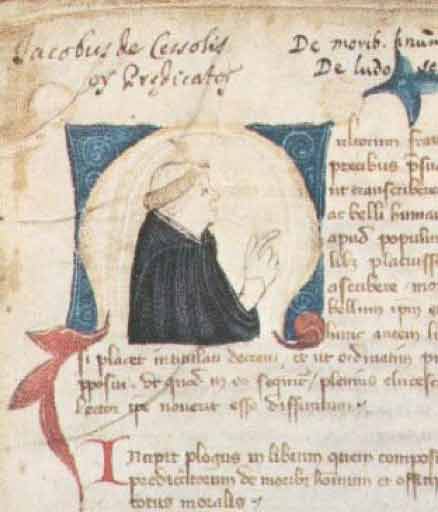 Jacobus de Cessolis
or Predicator
De morib. hnūm
De ludo
ultorum frat
precibus psua
ut transcribere
ac belli humani
apud populum
libz placuisse
ascribere mor
bellum ipm e
hunc autem li
si placet intitulari decreui, et ut ordinatim pr
pposui. ut quod in eo sequitur / plenius eluces
lector ipe nouerit esse diffinitum
Incipit plogus in librum quem composu
predicatorum de moribz hominum et offitijs
totus moralis